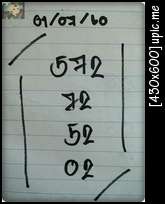 01/07/60
572
72
52
02
[430x600]upic.me